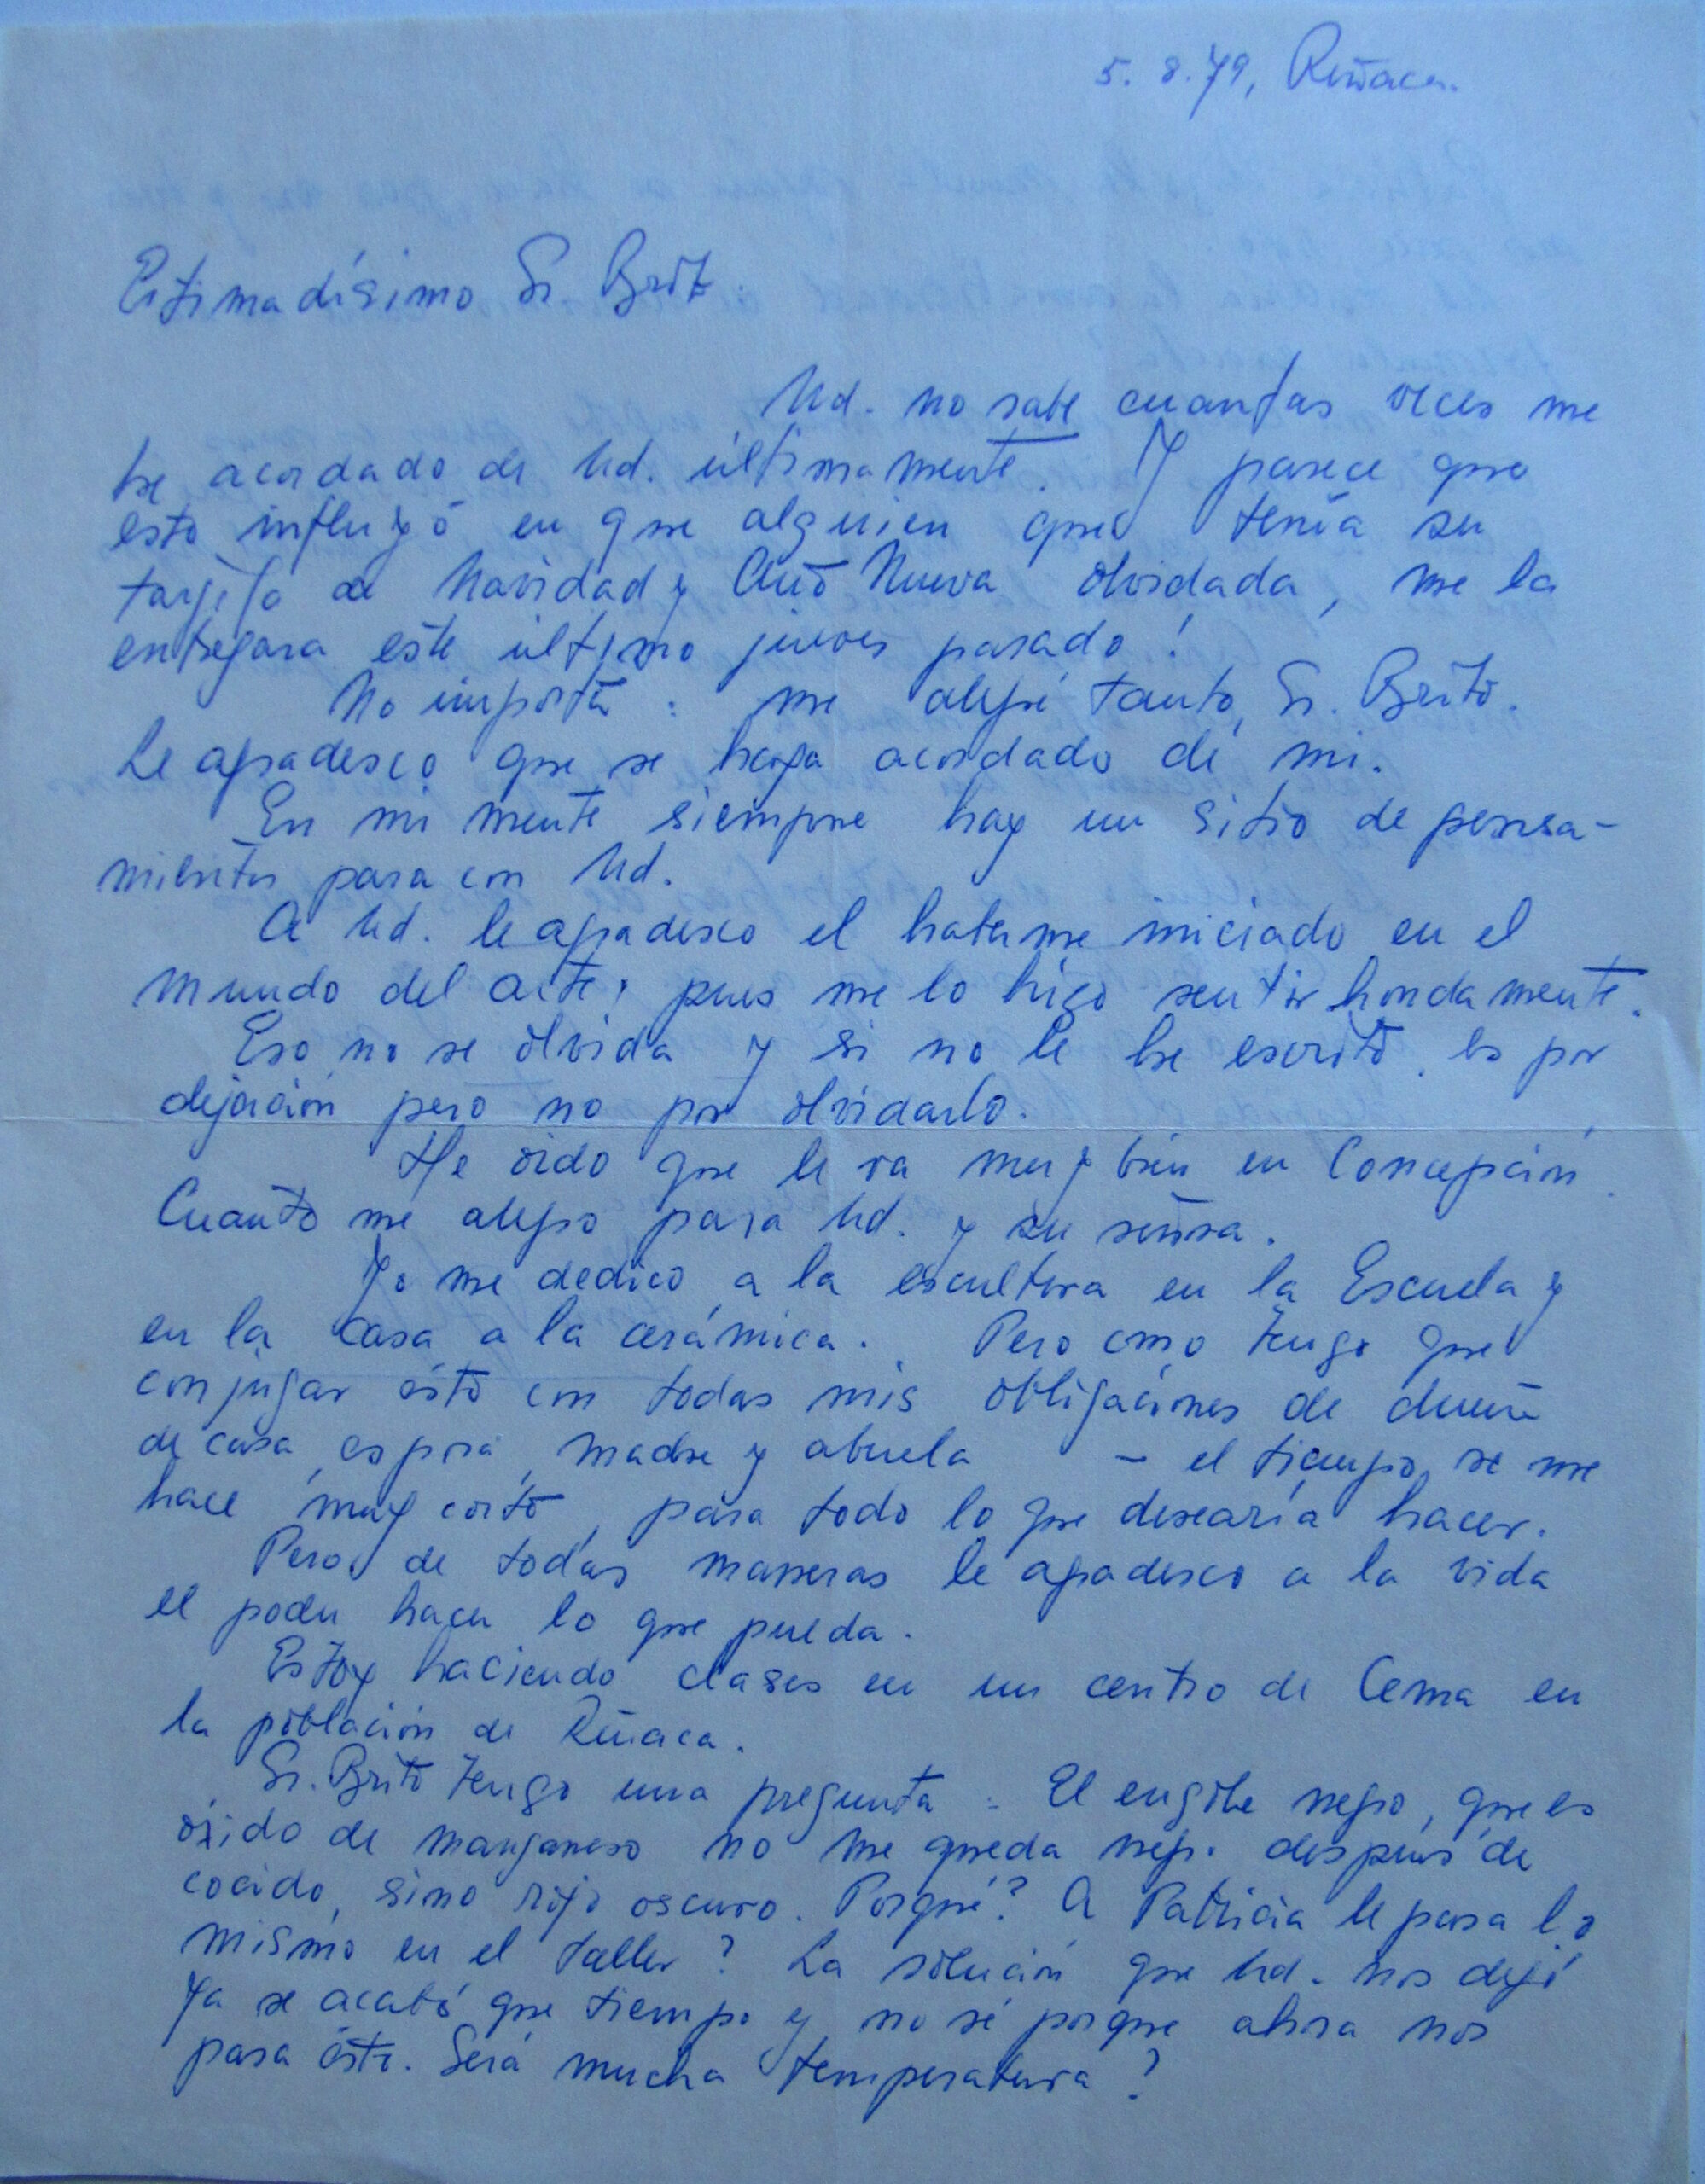 5. 8. 79, Reñaca.
Estimadísimo Sr. Brito:
Ud. no sabe cuantas veces me
he acordado de Ud. últimamente. Y parece que
esto influyó en que alguien que tenía su
tarjeta de Navidad y Año Nuevo olvidada, me la
entregara este último jueves pasado!
No importa: me alegré tanto, Sr. Brito.
Le agradesco que se haya acordado de mi.
En mi mente siempre hay un sitio de pensa-
mientos para con Ud.
A Ud. le agradesco el haberme iniciado en el
mundo del arte, pues me lo hizo sentir hondamente.
Eso no se olvida y si no le he escrito, es por
dejación pero no por olvidarlo.
He oido que le va muy bien en Concepción.
Cuanto me alegro para Ud. y su señora.
Yo me dedico a la escultura en la Escuela y
en la casa a la cerámica. Pero como tengo que
conjugar ésto con todas mis obligaciones de dueña
de casa, esposa, madre y abuela - el tiempo se me
hace muy corto, para todo lo que desearía hacer.
Pero de todas maneras le agradesco a la vida
el poder hacer lo que pueda.
Estoy haciendo clases en un centro de Cema en
la población de Reñaca.
Sr. Brito tengo una pregunta: El engobe negro, que es
óxido de manganeso no me queda negro después de
cocido, sino rojo oscuro. Porqué? A Patricia le pasa lo
mismo en el taller? La solución que Ud. nos dejó
ya se acabó que tiempo y no sé porque ahora nos
pasa ésto. Será mucha temperatura?